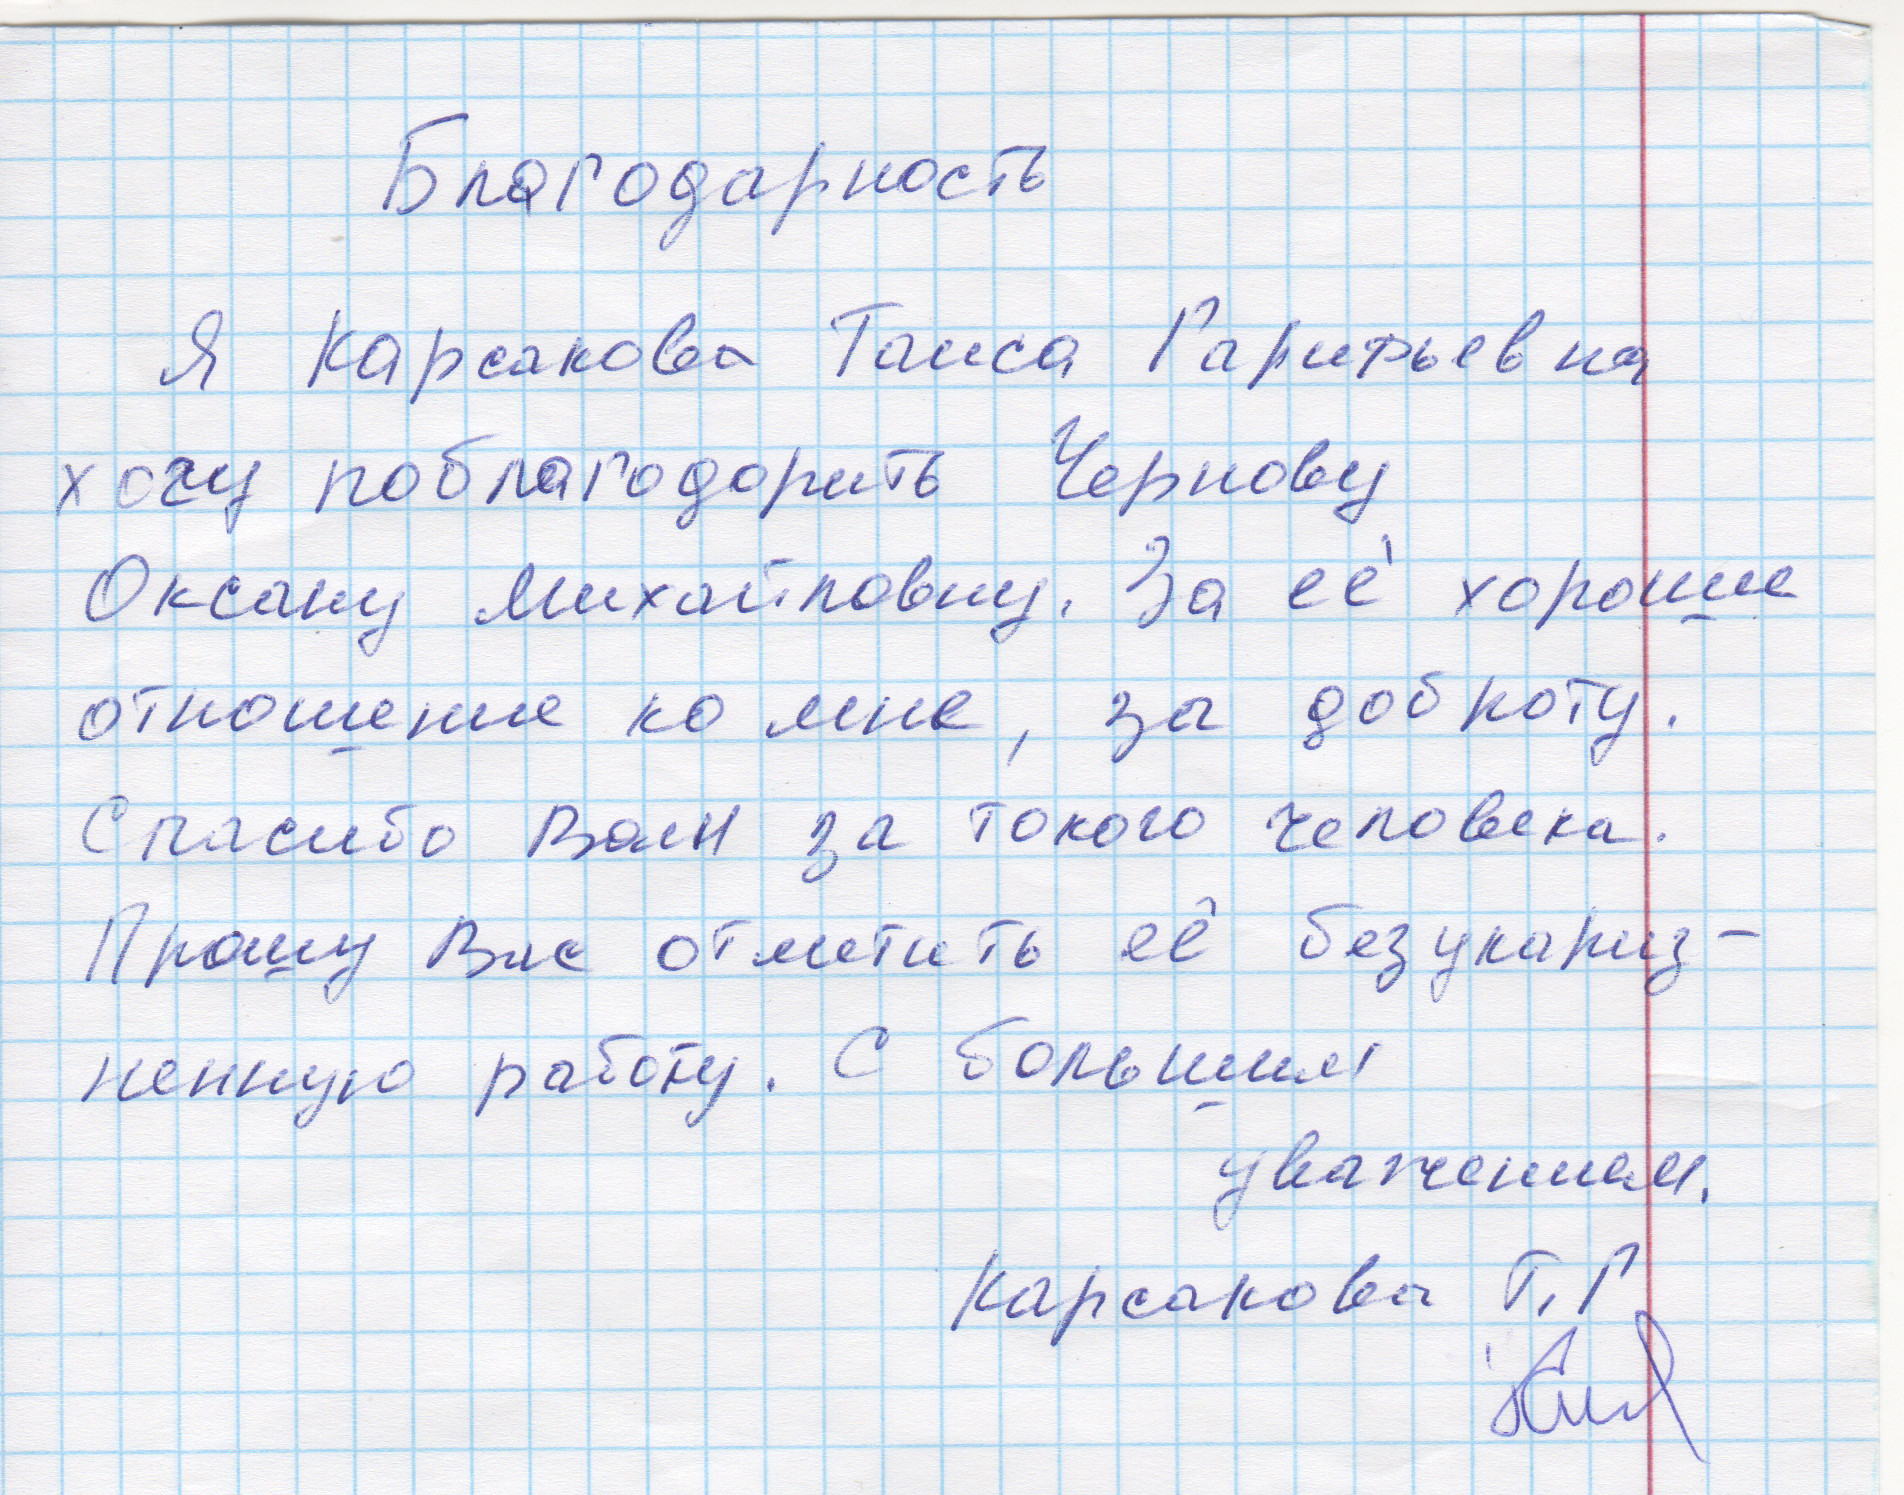 Благодарность
Я Карсакова Таиса Гаритьевна
хочу поблагодорить Чернову
Оксану Михайловну. За её хорошие
отношение ко мне, за доброту.
Спасибо Вам за токого человека.
Прошу Вас отметить её безукариз-
ненную работу. С большим
уважением.
Карсакова Т.Г